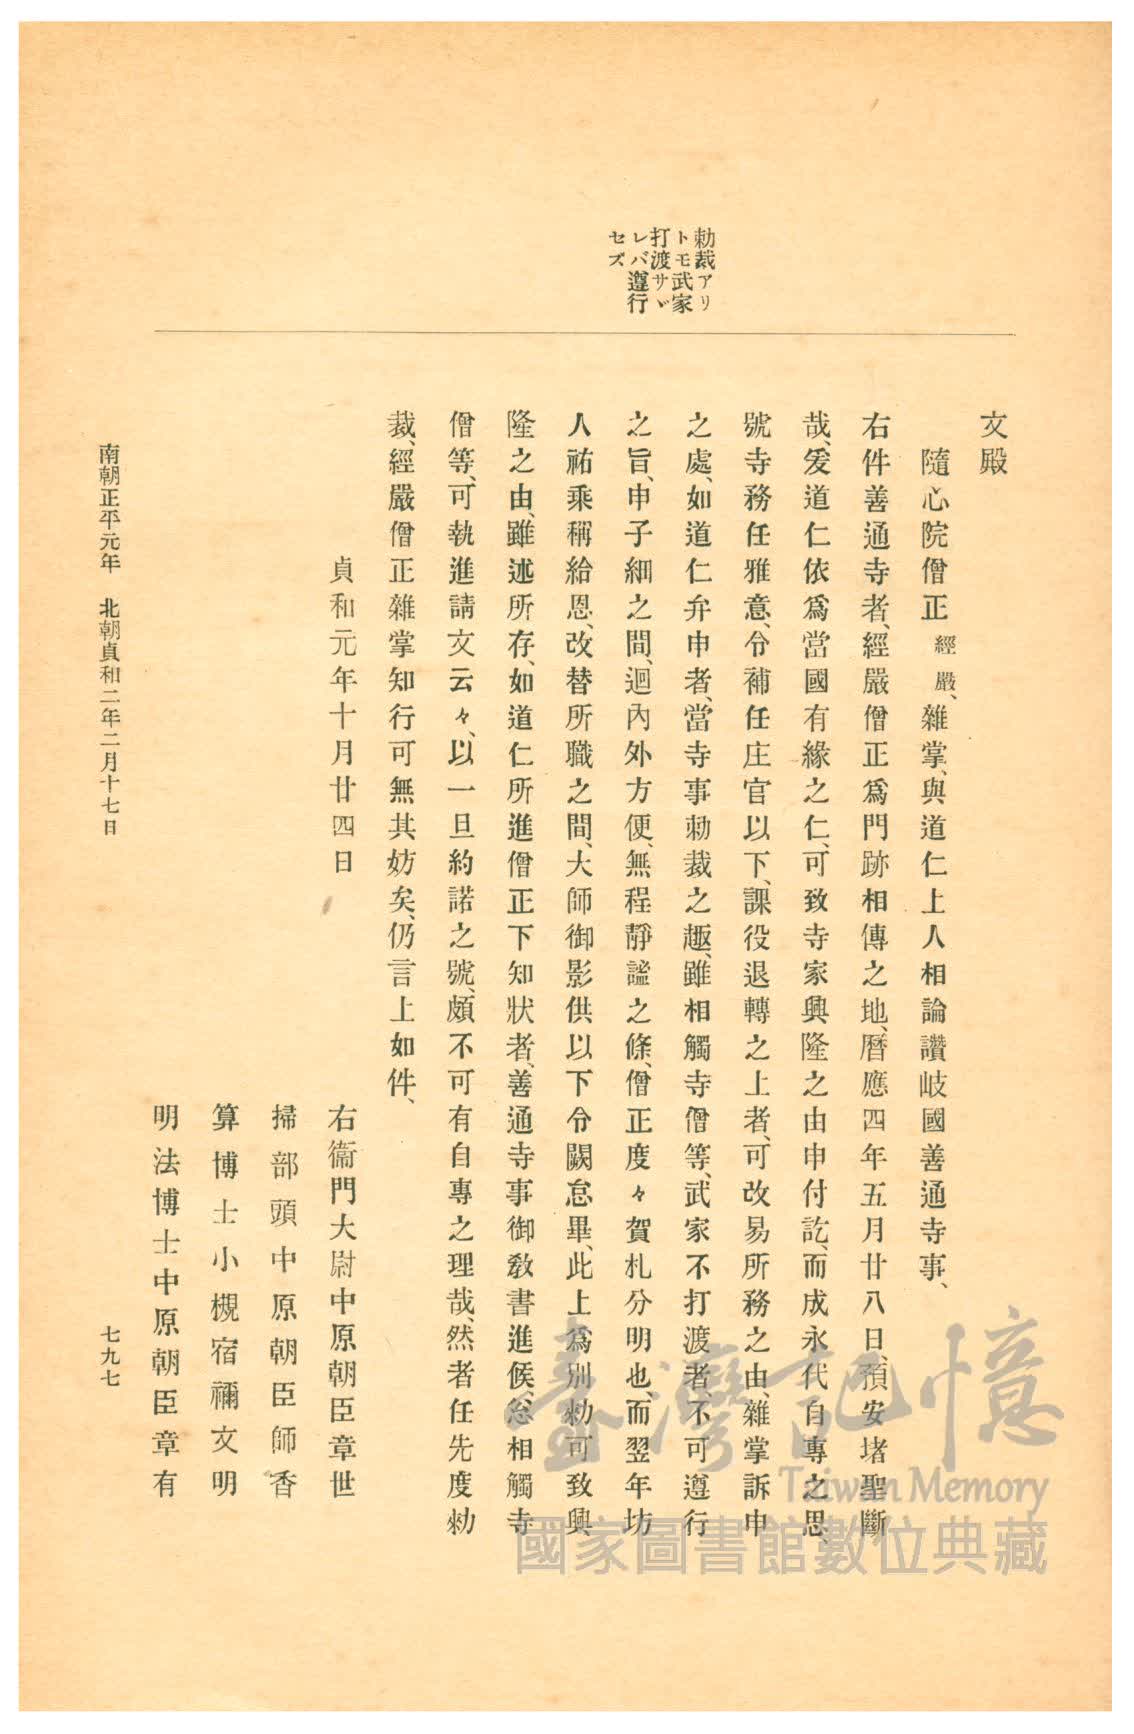 勅裁アリ
トモ武家
打渡サヾ
レバ遵行
セズ
文殿
隨心院僧正經嚴、雜掌、與道仁上人相論讚岐國善通寺事、
右件善通寺者、經嚴僧正爲門跡相傳之地、曆應四年五月廿八日、預安堵聖斷
哉、爰道仁依爲當國有緣之仁、可致寺家興隆之由申付訖、而成永代自專之思、
號寺務任雅意、令補任庄官以下、課役退轉之上者、可改易所務之由、雜掌訴申
之處、如道仁弁申者、當寺事勅裁之趣、雖相觸寺僧等、武家不打渡者、不可遵行
之旨、申子細之間、迴內外方便、無程靜謐之條、僧正度々賀札分明也、而翌年坊
人祐乘稱給恩、改替所職之間、大師御影供以下令闕怠畢、此上爲別勅可致興
隆之由、雖述所存、如道仁所進僧正下知狀者、善通寺事御敎書進候、忩相觸寺
僧等、可執進請文云々、以一旦約諾之號、頗不可有自專之理哉、然者任先度勅
裁、經嚴僧正雜掌知行可無其妨矣、仍言上如件、
貞和元年十月廿四日
右衞門大尉中原朝臣章世
掃部頭中原朝臣師香
算博士小槻宿禰文明
明法博士中原朝臣章有
南朝正平元年 北朝貞和二年二月十七日
七九七
臺灣記憶
Taiwan Memory
國家圖書館數位典藏